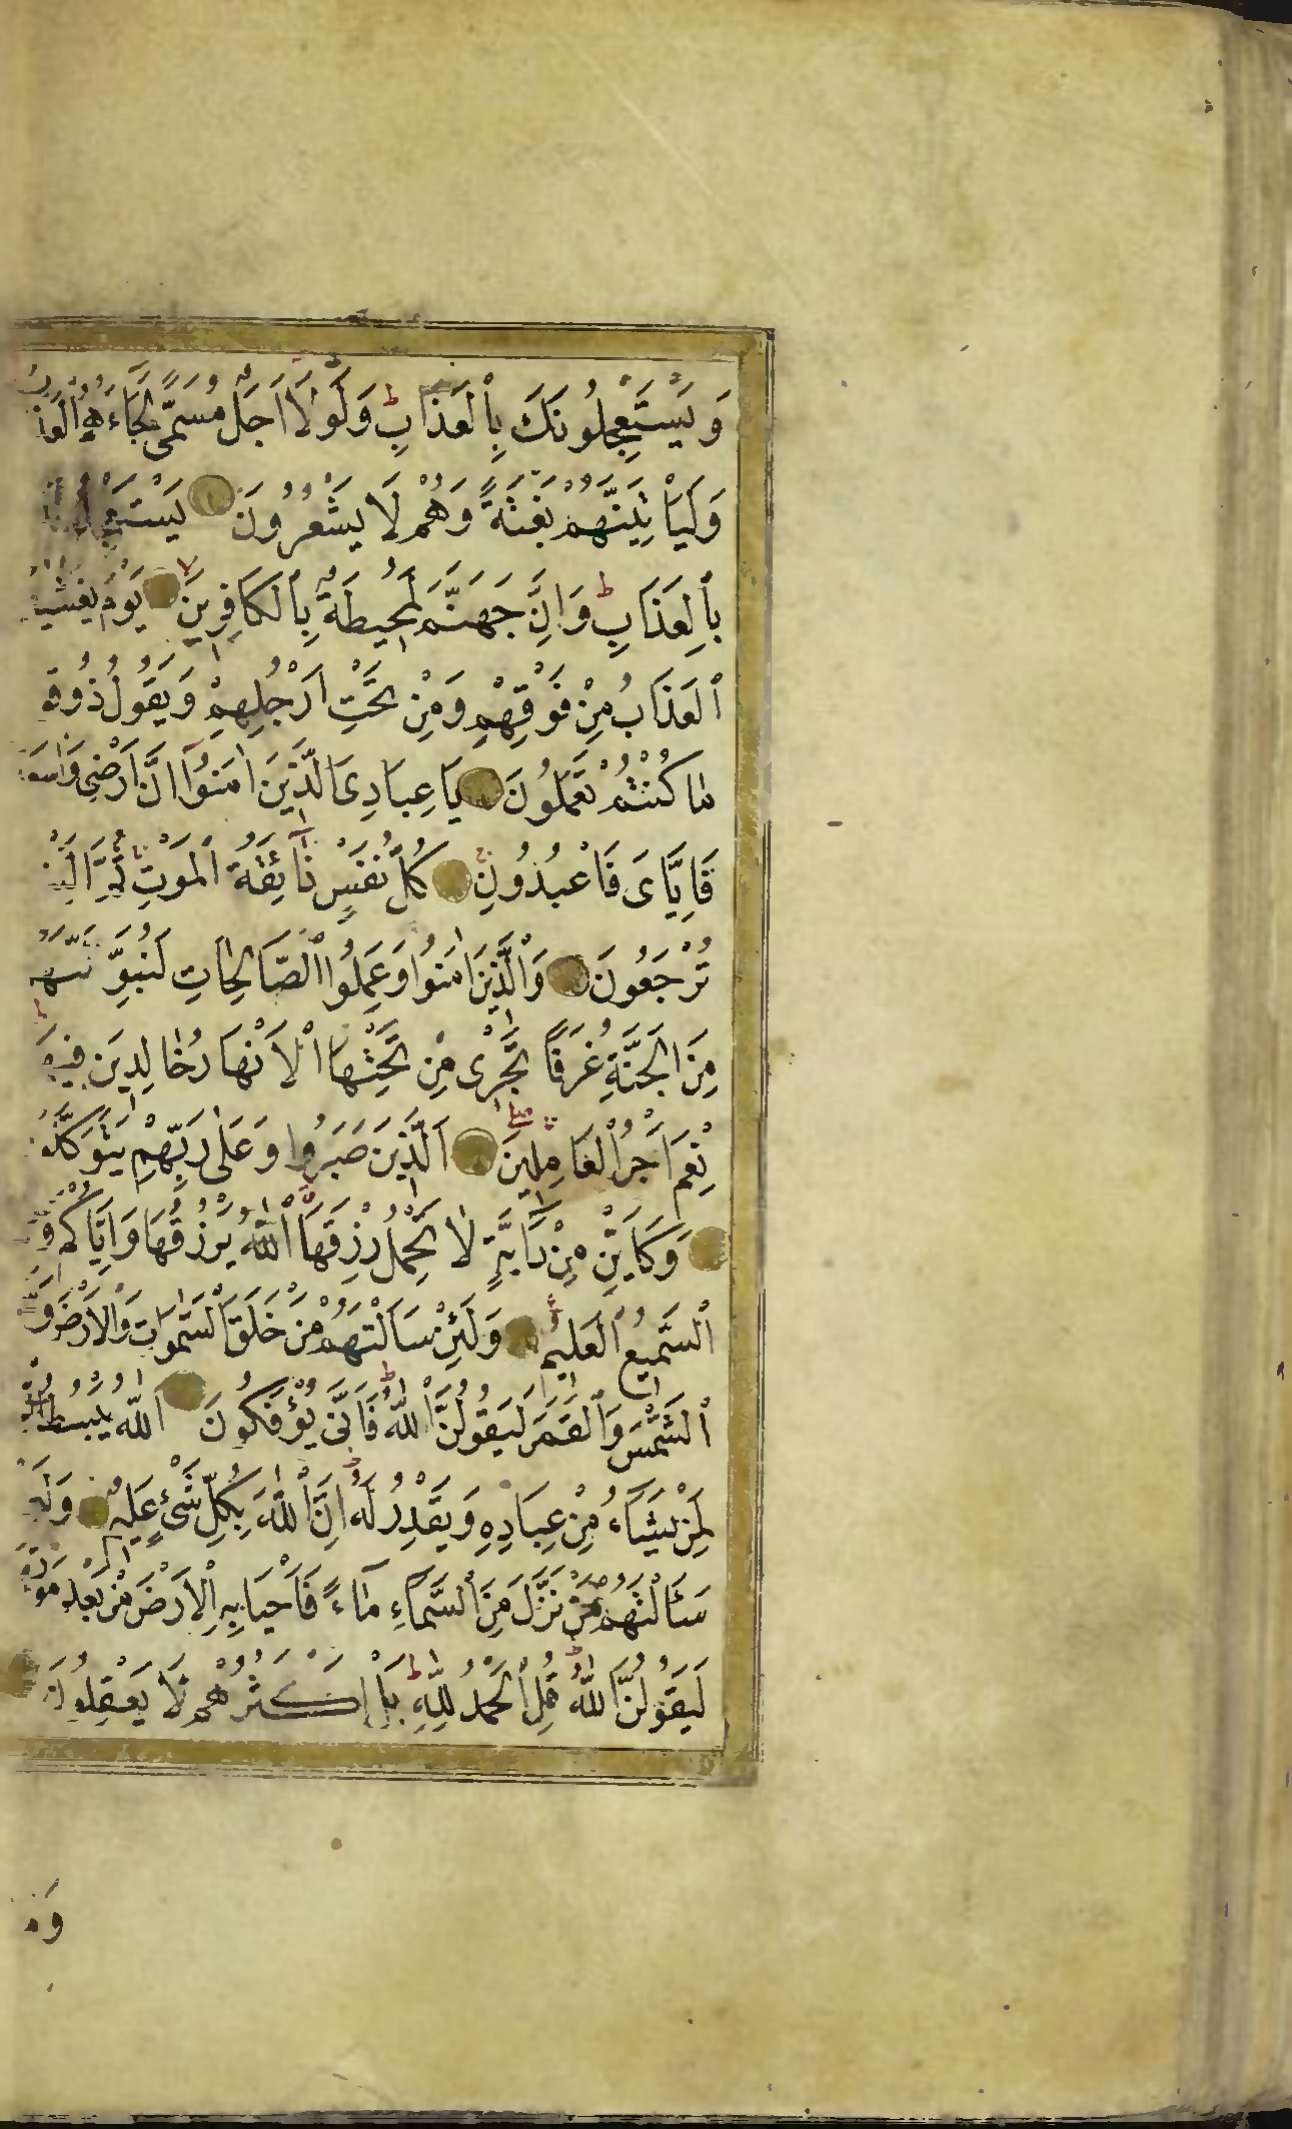 وَيَسْتَعْجِلُونَكَ بِٱلْعَذَابِ ط وَلَوْلَا اَجَلٌ مُسَمًّى لَجَاءَهُمُ الْعَذَابُ
وَلَيَأْتِيَنَّهُمْ بَغْتَةً وَهُمْ لَا يَشْعُرُونَ يَسْتَعْجِلُونَكَ
بِٱلْعَذَابِ ط وَاِنَّ جَهَنَّمَ لَمُحِيطَةٌ بِٱلْكَافِرِينَ لا يَوْمَ يَغْشٰيهُ
ٱلْعَذَابُ مِنْ فَوْقِهِمْ وَمِنْ تَحْتِ اَرْجُلِهِمْ وَيَقُولُ ذُوقُ
مَا كُنْتُمْ تَعْمَلُونَ يَا عِبَادِىَ الَّذِينَ اٰمَنُوٓا اِنَّ اَرْضِى وَاسِعَ
فَاِيَّاىَ فَاعْبُدُونِ كُلُّ نَفْسٍ ذَآئِقَةُ ٱلْمَوْتِ ثُمَّ اِلَيْنَ
تُرْجَعُونَ وَٱلَّذِينَ اٰمَنُوا وَعَمِلُوا ٱلصَّالِحَاتِ لَنُبَوِّئَنَّهُ
مِنَ ٱلْجَنَّةِ غُرَفًا تَجْرِى مِنْ تَحْتِهَا ٱلْاَنْهَارُ خَالِدِينَ فِيهَ ط
نِعْمَ اَجْرُ ٱلْعَامِلِينَ اَلَّذِينَ صَبَرُوا وَعَلٰى رَبِّهِمْ يَتَوَكَّلُ
وَكَاَيِّنْ مِنْ دَآبَّةٍ لَا تَحْمِلُ رِزْقَهَا ٱللّٰهُ يَرْزُقُهَا وَاِيَّاكُمْ وَ
ٱلسَّمِيعُ ٱلْعَلِيمُ وَلَئِنْ سَاَلْتَهُمْ مَنْ خَلَقَ ٱلسَّمٰوَاتِ وَٱلْاَرْضَ وَ
ٱلشَّمْسَ وَٱلْقَمَرَ لَيَقُولُنَّ ٱللّٰهُ ط فَاَنّٰى يُؤْفَكُونَ اَللّٰهُ يَبْسُطُ
لِمَنْ يَشَآءُ مِنْ عِبَادِهِ وَيَقْدِرُ لَهُ ط اِنَّ ٱللّٰهَ بِكُلِّ شَىْءٍ عَلِيمٌ وَلَئِ
سَئَالْتَهُمْ مَنْ نَزَّلَ مِنَ ٱلسَّمَآءِ مَآءً فَاَحْيَا بِهِ ٱلْاَرْضَ مِنْ بَعْدِ مَوْتِ
لَيَقُولُنَّ ٱللّٰهُ ط قُلِ ٱلْحَمْدُ لِلّٰهِ ط بَلْ اَكْثَرُهُمْ لَا يَعْقِلُونَ
وَمَ